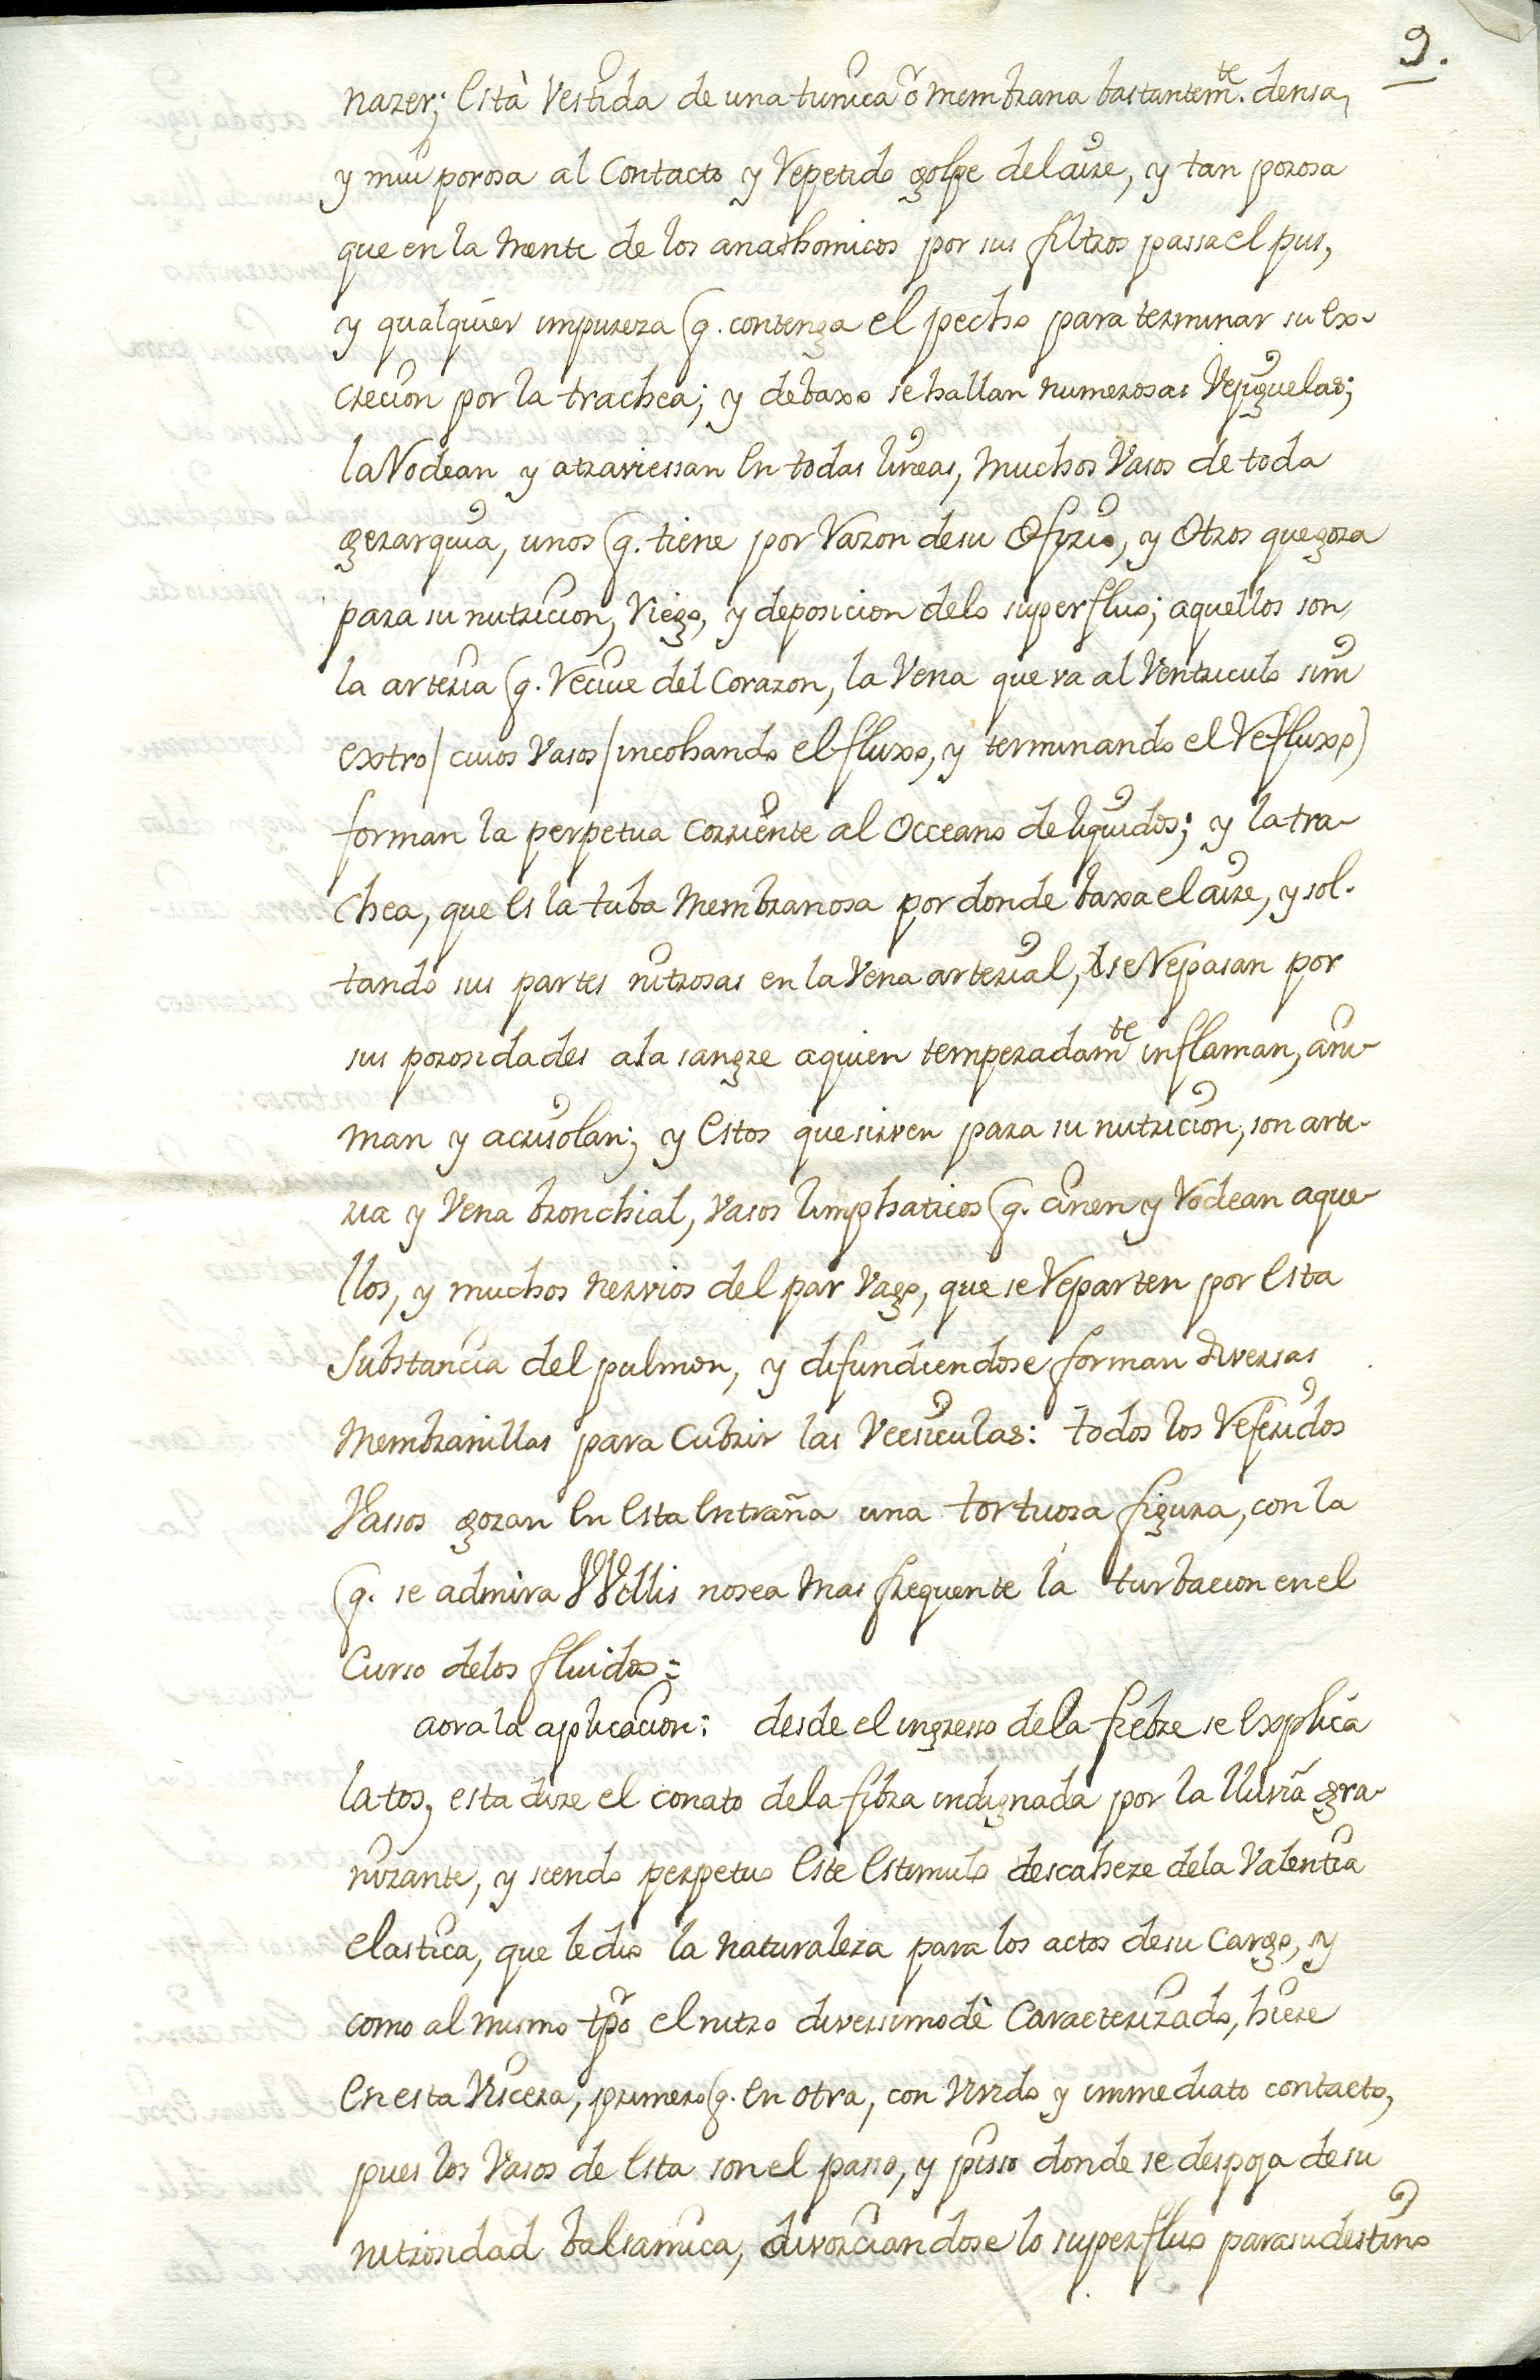 9.
nazer; està Vestida de una tunica ô membrana bastantem.te densa,
y mui porosa al Contacto y repetido golpe del aire, y tan porosa
que en la mente de los anathomicos por sus filtros passa el pus,
y qualquier impureza q. contenga el pecho para terminar su ex-
crecion por la trachea; y debaxo se hallan numerosas vejiguelas;
la rodean y atraviessan en todas lineas, muchos Vasos de toda
gerarquia, unos q. tiene por razon de su Ofizio, y Otros que goza
para su nutricion, riego, y deposicion de lo superfluo; aquellos son
la arteria q. recive del Corazon, la Vena que va al Ventriculo sini
extro / cuios Vasos / incohando el fluxo, y terminando el refluxo)
forman la perpetua corriente al Occeano de liquidos; y la tra-
chea, que es la tuba membranosa por donde baxa el aire, y sol-
tando sus partes nitrosas en la Vena arterial, se repasan por
sus porosidades a la sangre a quien temperadam.te inflaman, ani-
man y acrisolan; y estos que sirven para su nutricion, son arte-
ria y Vena bronchial, vasos limphaticos q. ciñen y rodean aque-
llos, y muchos nervios del par vago, que se reparten por esta
substancia del pulmon, y difundiendose forman diversas
membranillas para cubrir las Vecsiculas: todos los referidos
Vassos gozan en esta entraña una tortuosa figura, con la
q. se admira Willis no sea mas frequente la turbacion en el
Curso de los fluidos:
aora la aplicacion: desde el ingresso de la fiebre se explica
la tos, esta dize el conato de la fibra indignada por la lluvia gra-
nizante, y siendo perpetuo este estimulo descaheze de la Valentia
elastica, que le dio la naturaleza para los actos de su Cargo, y
como al mismo tpo el nitro diversimodè Caracterizado, hiere
en esta viscera, primero q. en otra, con vivido y immediato contacto,
pues los Vasos de esta son el passo, y pisso donde se despoja de su
nitrosidad balsamica, divorciandose lo superfluo para su destino